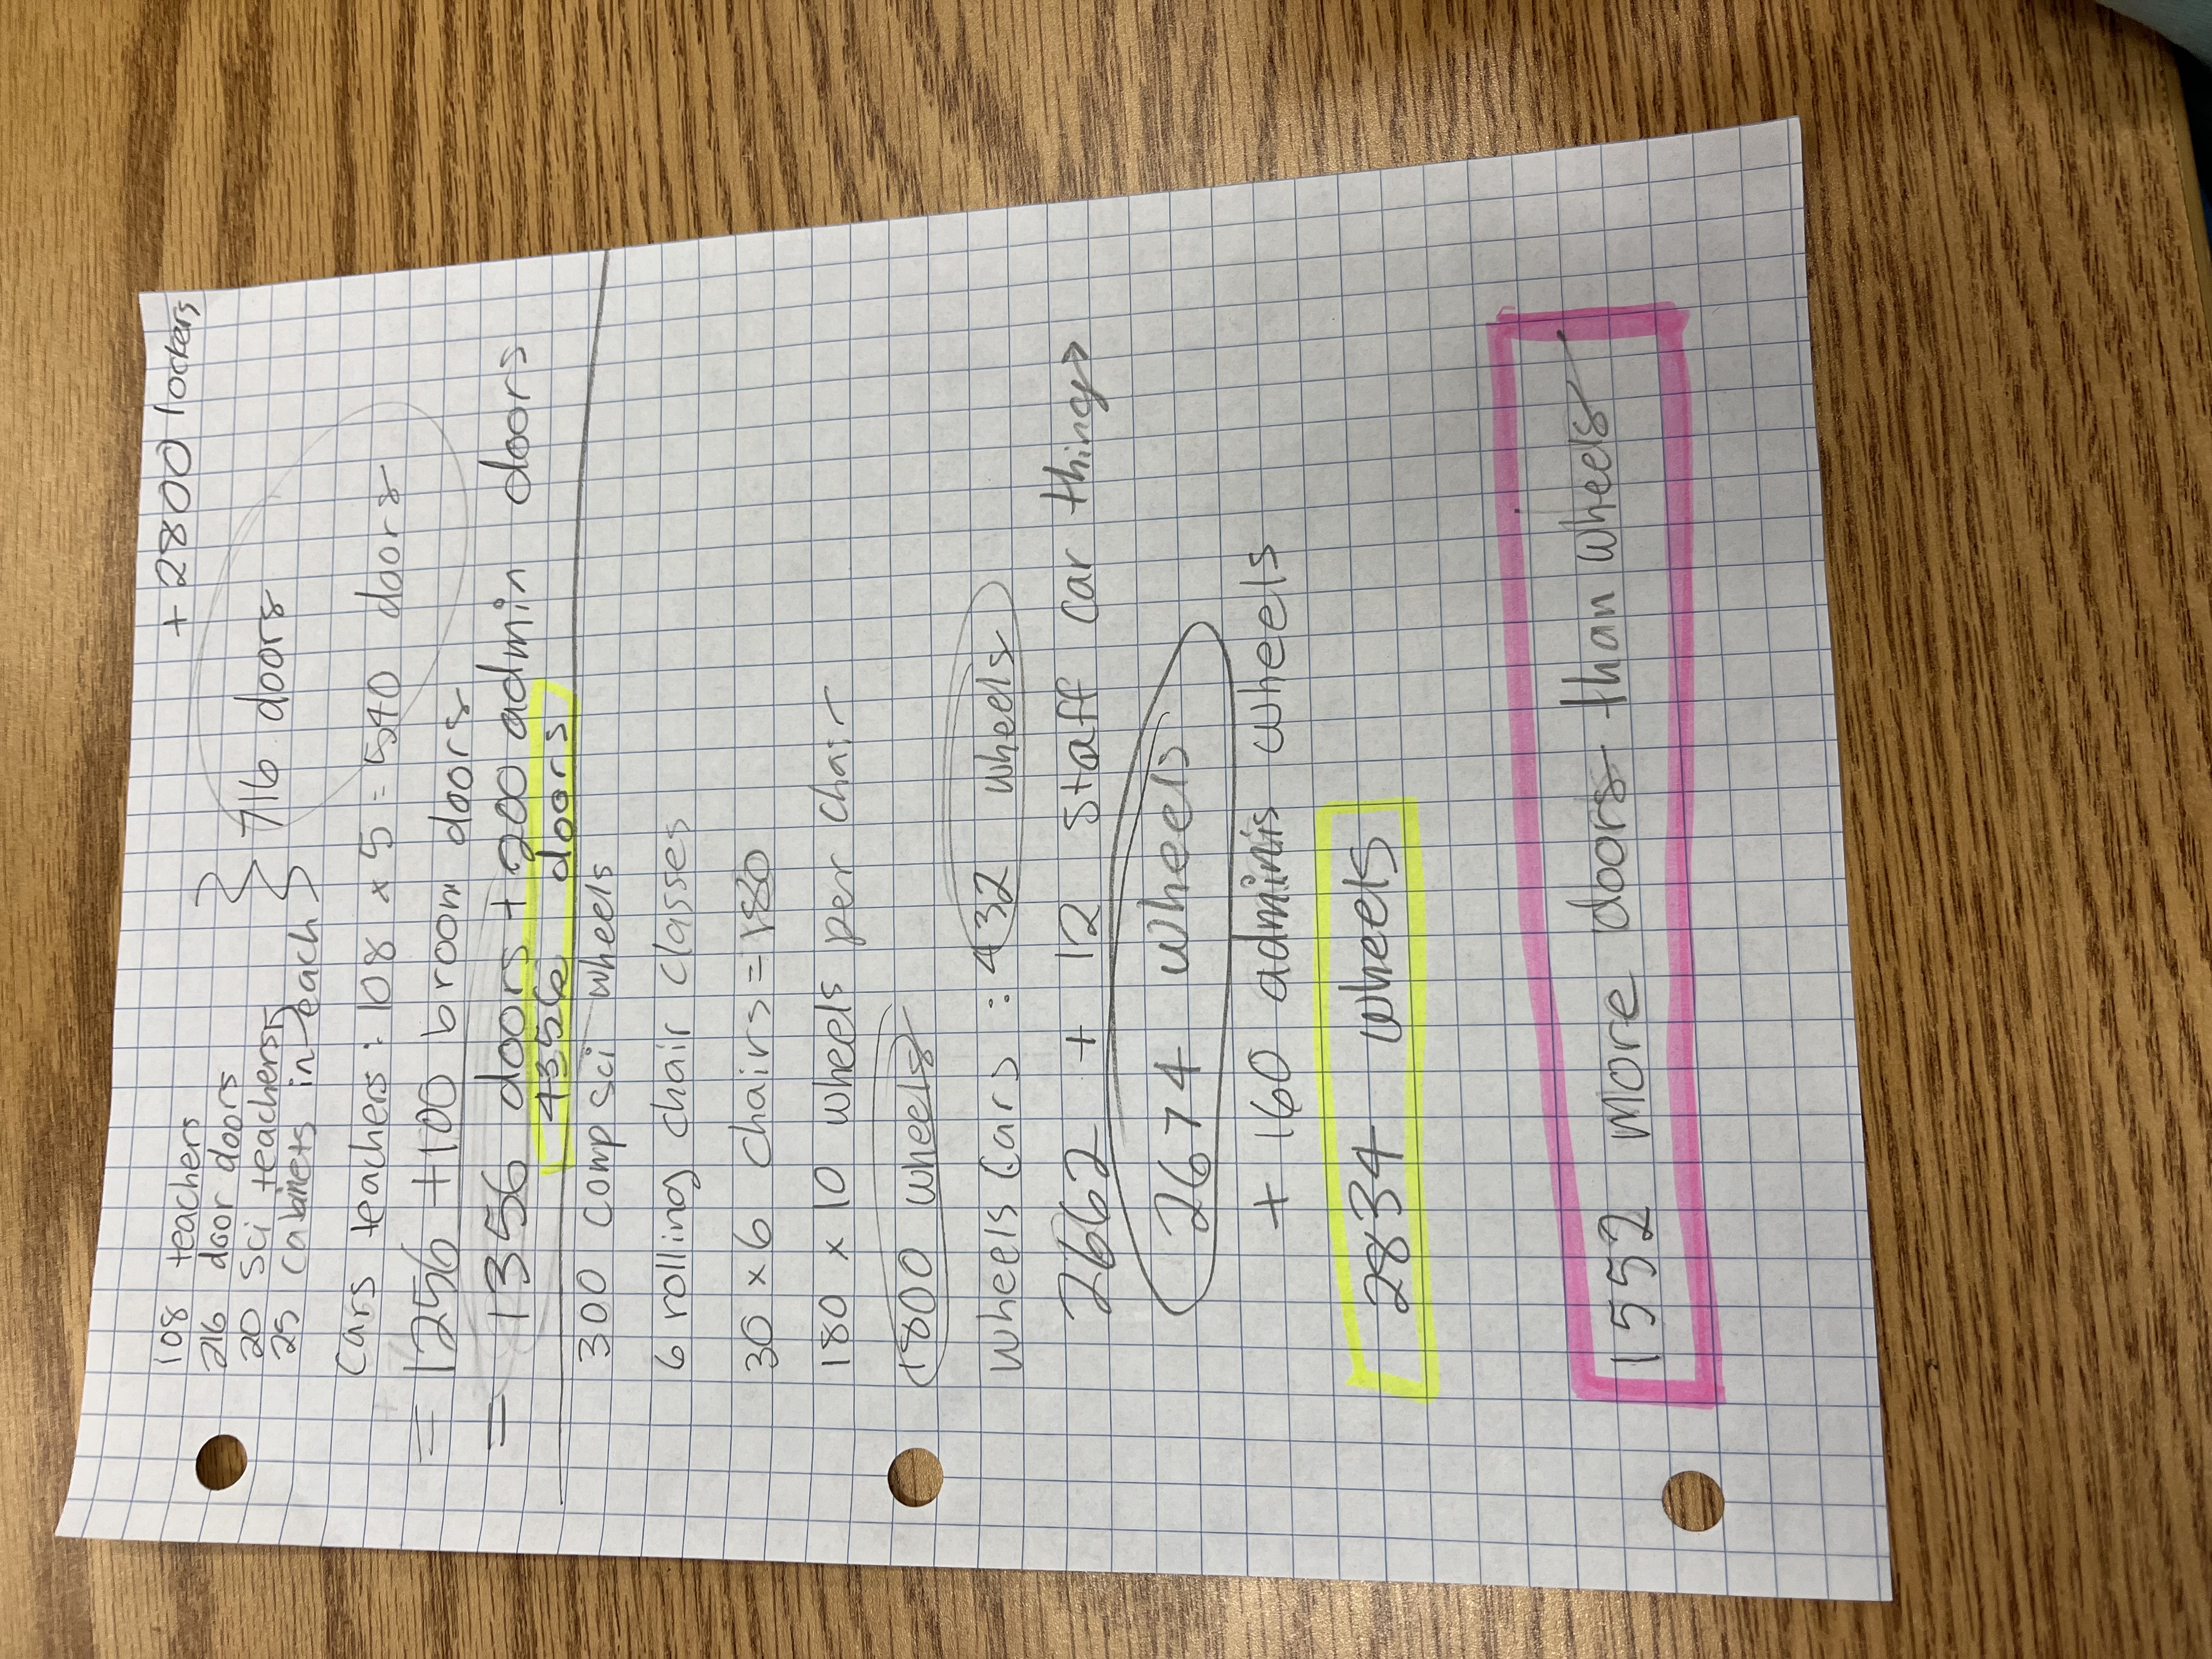 + 2800 lockers
108 teachers
216 door doors
20 sci teachers
25 cabinets in each
716 doors
Cars teachers : 108 x 5 = 540 doors
= 1256 + 100 broom doors
= 1356 doors + 200 admin doors
4356 doors
300 comp sci wheels
6 rolling chair classes
30 x 6 chairs = 180
180 x 10 wheels per chair
1800 wheels
wheels Cars : 432 wheels
2662 + 12 staff car things
2674 wheels
+ 160 adminis wheels
2834 wheels
1552 more doors than wheels